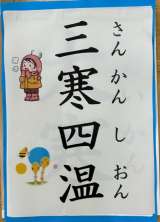 三寒四温
さん かん し おん